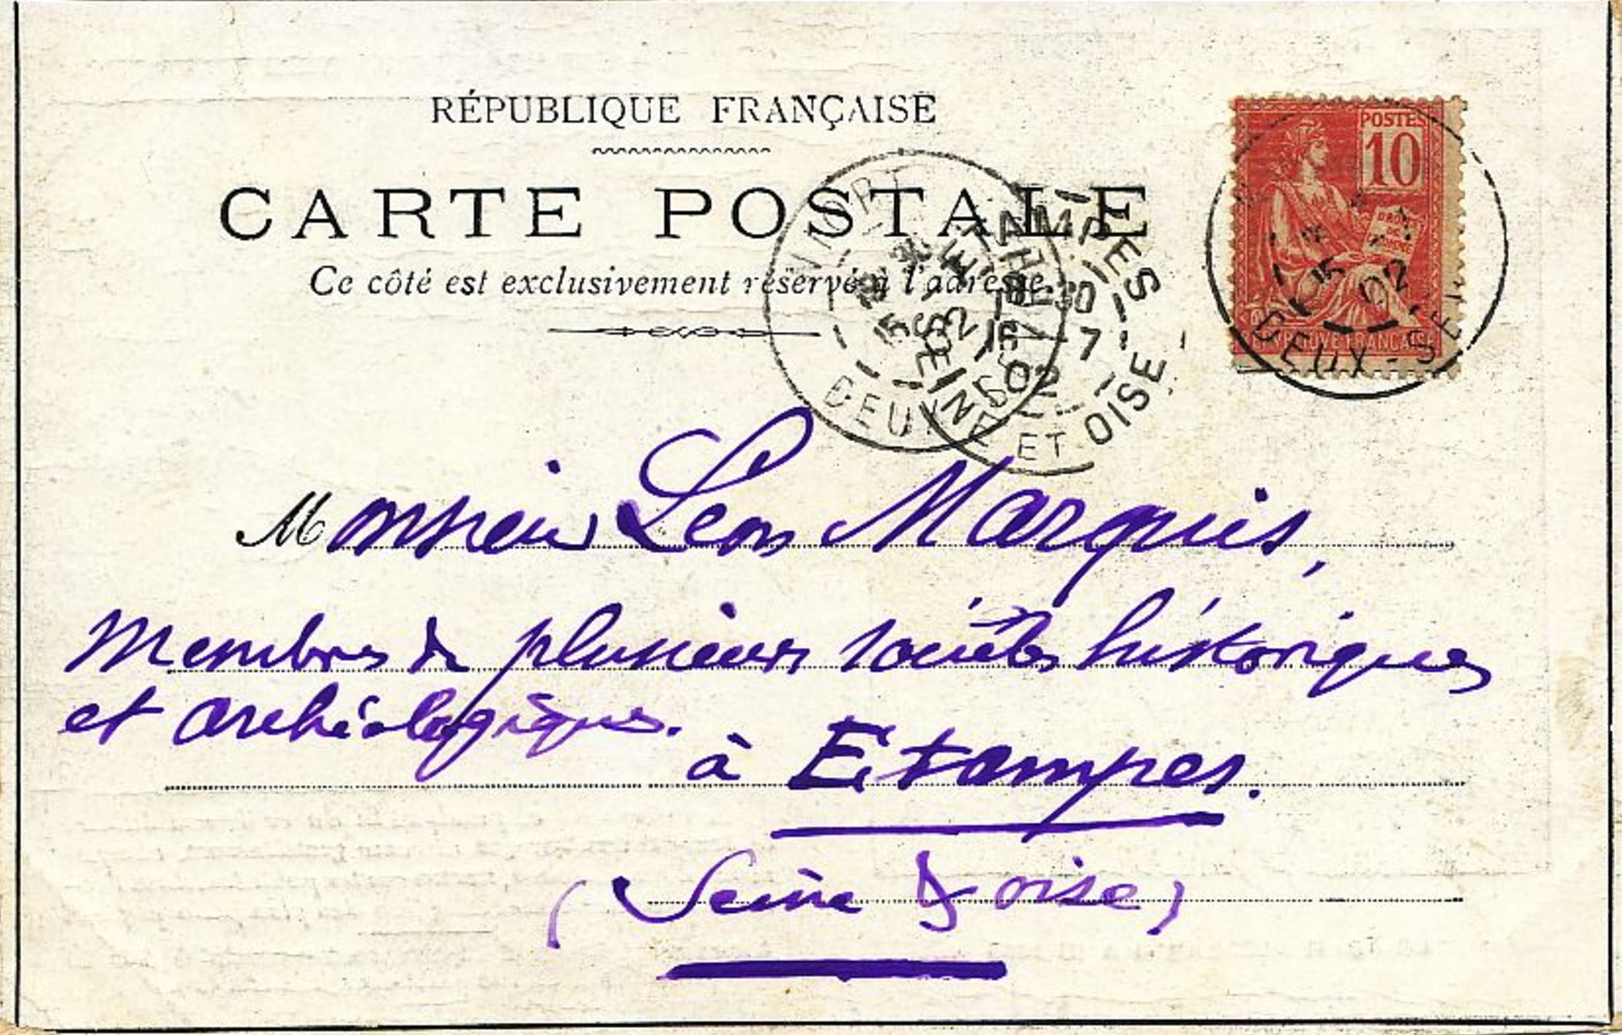 RÉPUBLIQUE FRANÇAISE
CARTE POSTALE
Ce côté est exclusivement réservé à l'adresse.
POSTES
10
DEUX-SE
15
02
NIORT
DEUX
ETAMPES
18:30
15-7
02
SEINE ET OISE
Monsieur Léon Marquis,
Membres de plusieurs sociétés historiques
et archéologiques.
à Etampes.
(Seine & oise)